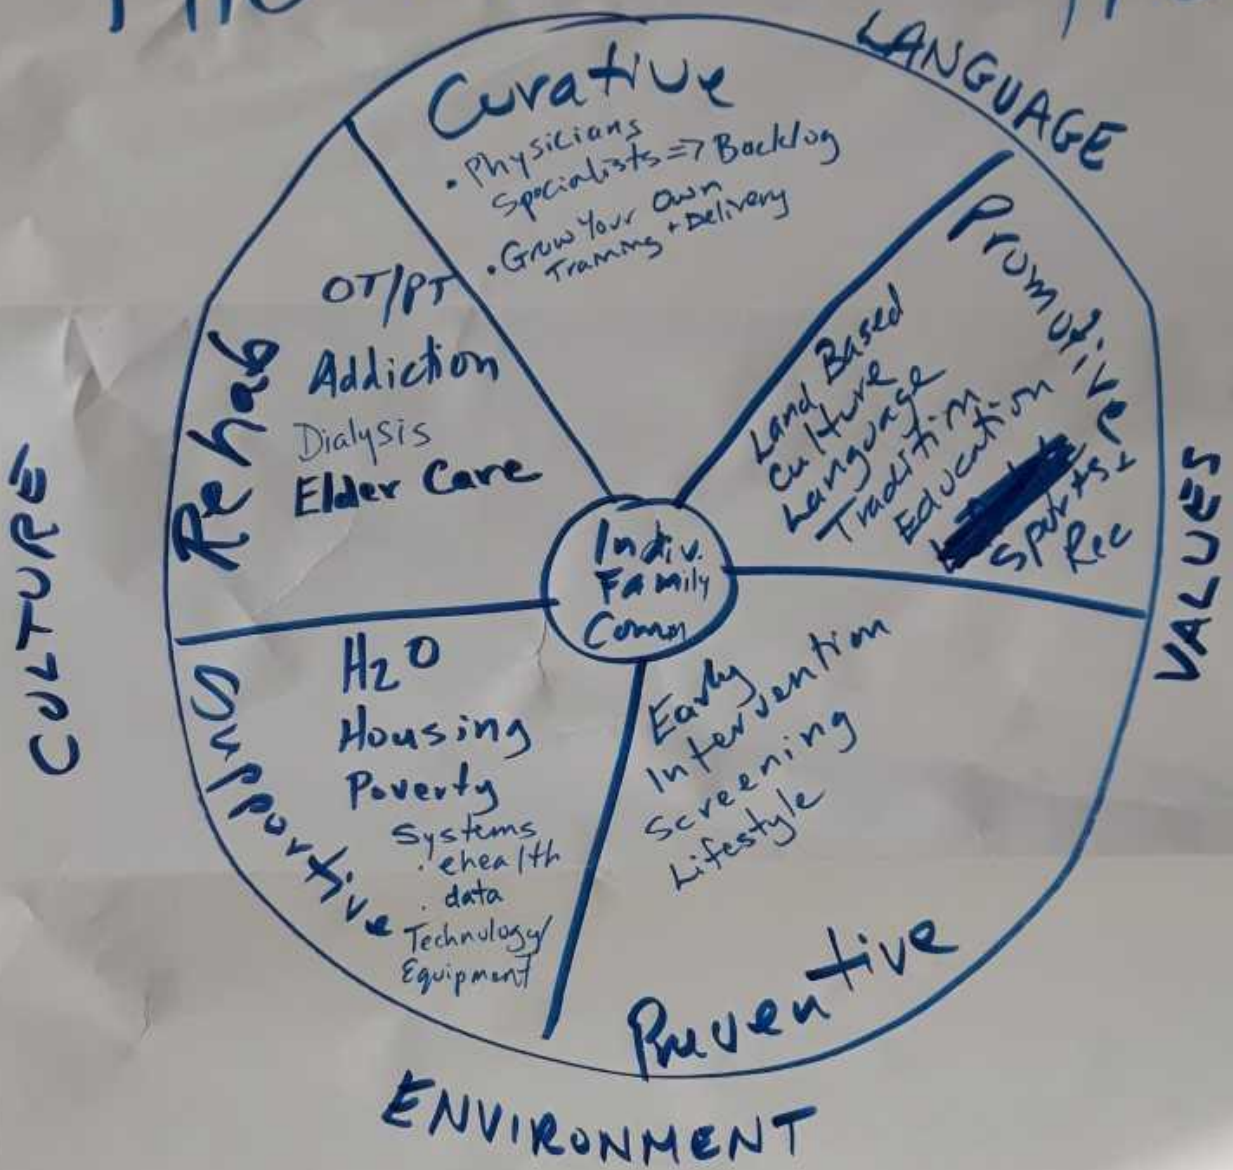 LANGUAGE
Curative
• Physicians
Specialists => Backlog
• Grow Your Own
Training + Delivery
Promotive
Land Based
Culture
Language
Tradition
Education
Sports +
Rec
VALUES
Rehab
OT/PT
Addiction
Dialysis
Elder Care
CULTURE
Indiv.
Family
Comm
Supportive
H2O
Housing
Poverty
Systems
. ehealth
. data
Technology/
Equipment
Early
Intervention
Screening
Lifestyle
Preventive
ENVIRONMENT